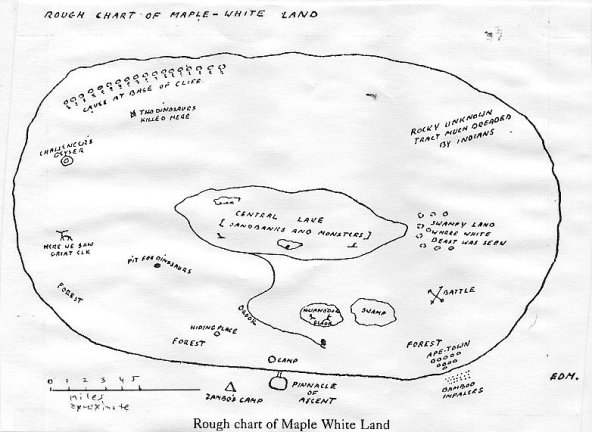 ROUGH CHART OF MAPLE-WHITE LAND
CAVES AT BASE OF CLIFF
TWO DINOSAURS
KILLED HERE
ROCKY UNKNOWN
TRACT MUCH DREADED
BY INDIANS
GEYSER
CENTRAL LAKE
[SANDBANKS AND MONSTERS]
SWAMPY LAND
WHERE WHITE
BEAST WAS SEEN
HERE WE SAW
GREAT ELK
PIT FOR DINOSAURS
FOREST
BATTLE
BROOK
SWAMP
GLADE
HIDING PLACE
FOREST
FOREST
APE-TOWN
CAMP
0 1 2 3 4 5
miles
aproximate
ZAMBO'S CAMP
PINNACLE
OF
ASCENT
BAMBOO
IMPALERS
E.D.M.
Rough chart of Maple White Land